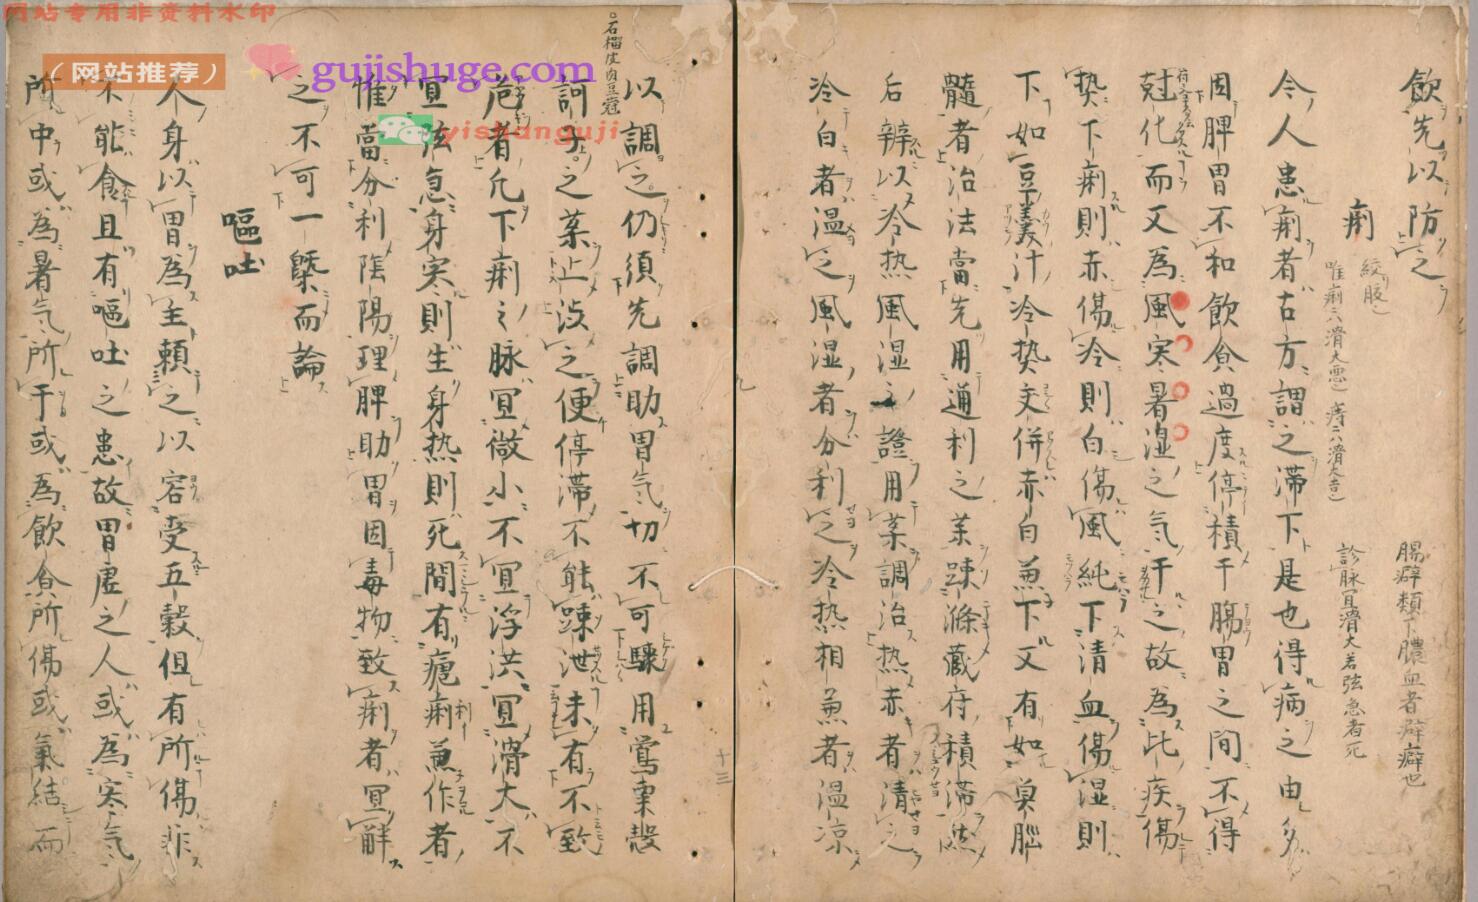 网站专用非资料水印
（网站推荐）
gujishuge.com
yishanguji
飲先以防之
腸癖類下膿血者癖癖也
痢
絞股也
唯痢ニハ滑大悪也 痔ニハ滑大吉也
診脉宜滑大若弦急者死
今人患痢者古方謂之滯下是也得病之由多
因脾胃不和飲食過度停積于腸胃之间不得
尅化而又為風寒暑湿之气干之故為此疾傷
熱下痢則赤傷冷則白傷風純下清血傷湿則
下如豆羹汁冷热交併赤白兼下又有如臭腦
髓者治法當先用通利之薬疎滌藏府積滯然
后辨以冷热風湿之證用薬調治热赤者清之
冷白者温之風湿者分利之冷热相兼者温凉
以調之仍須先調助胃气切不可驟用鶯粟殻
石榴皮肉豆蔻
訶子之薬止澁之便停滯不能疎泄未有不致
危者凡下痢之脉宜微小不宜浮洪宜滑大不
宜弦急身寒則生身热則死間有瘧痢兼作者
惟當分利陰陽理脾助胃因毒物致痢者宜解
之不可一槩而論
嘔吐
人身以胃為主頼之以容受五穀但有所傷非
不能食且有嘔吐之患故胃虚之人或為寒气
所中或為暑气所干或為飲食所傷或氣結而
十三